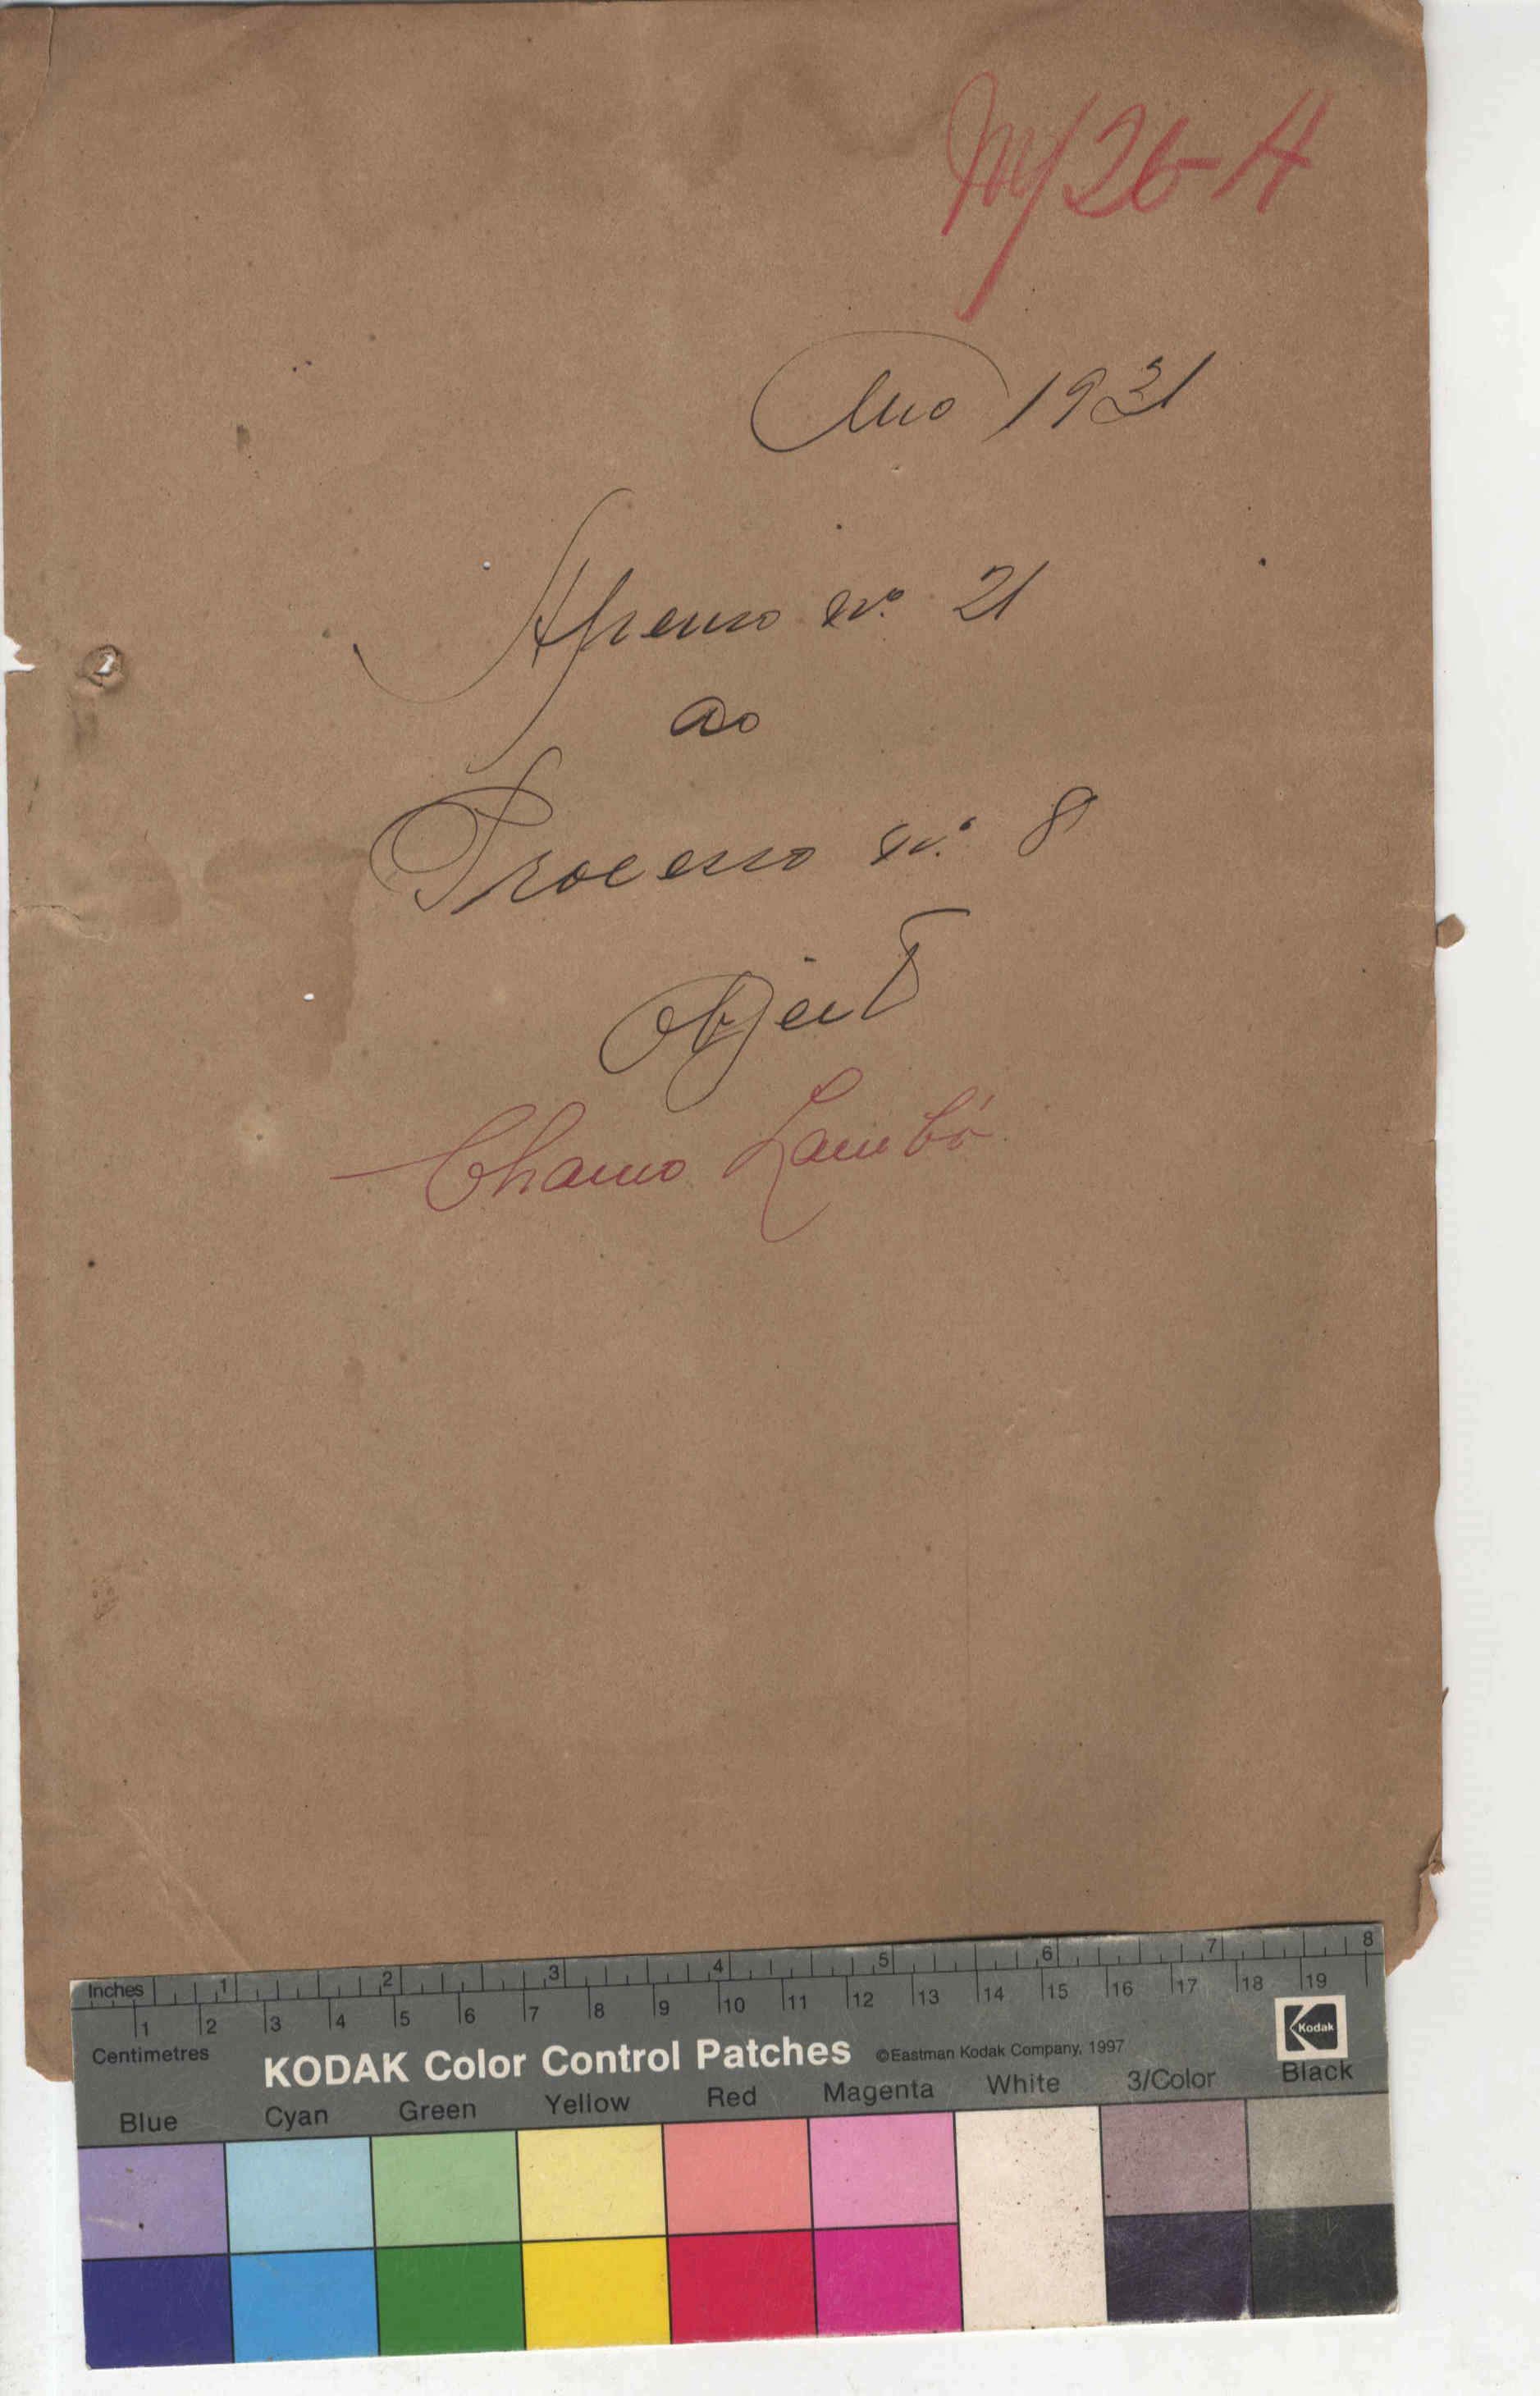 26-A
Ano 1931
Apenso nº. 21
ao
Processo nº. 8
Object
Chamo Zambó
Inches 1 2 3 4 5 6 7 8
1 2 3 4 5 6 7 8 9 10 11 12 13 14 15 16 17 18 19
Centimetres
KODAK Color Control Patches ©Eastman Kodak Company, 1997 Kodak
Blue Cyan Green Yellow Red Magenta White 3/Color Black